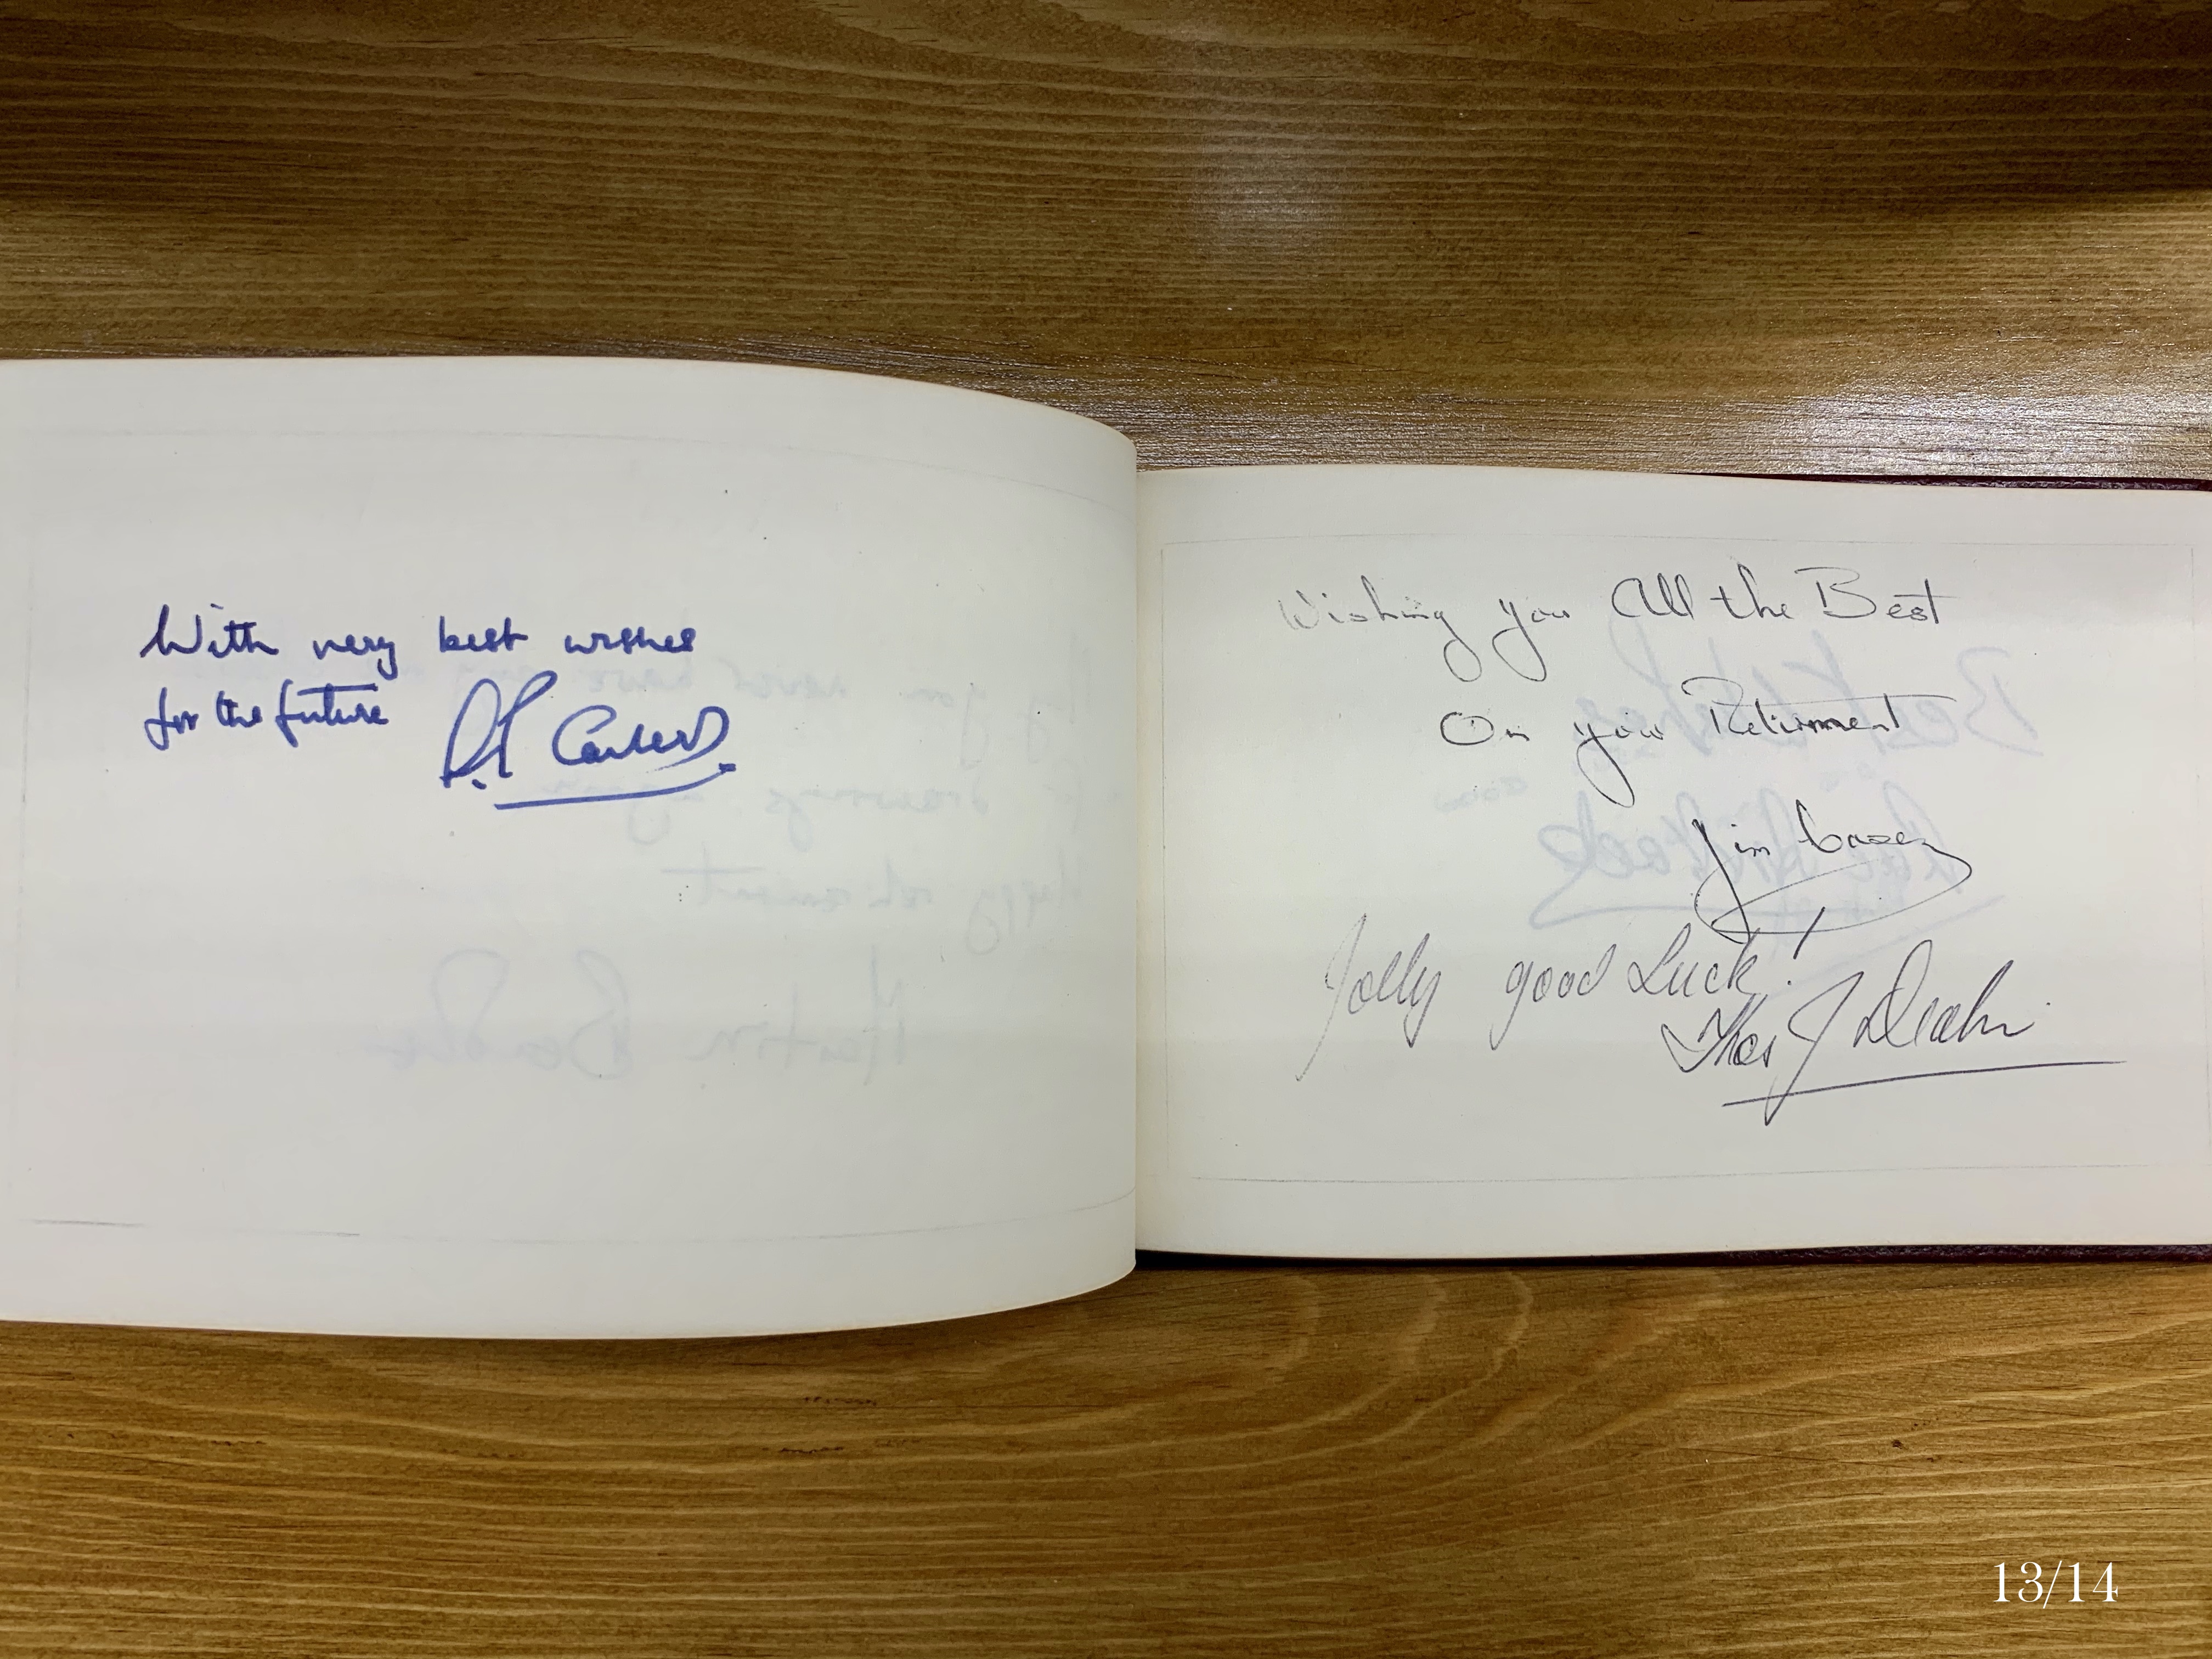 With very best wishes
for the future
Wishing you All the Best
On your Retirment
Jim Casey
Jolly good Luck!
Thos J
13/14